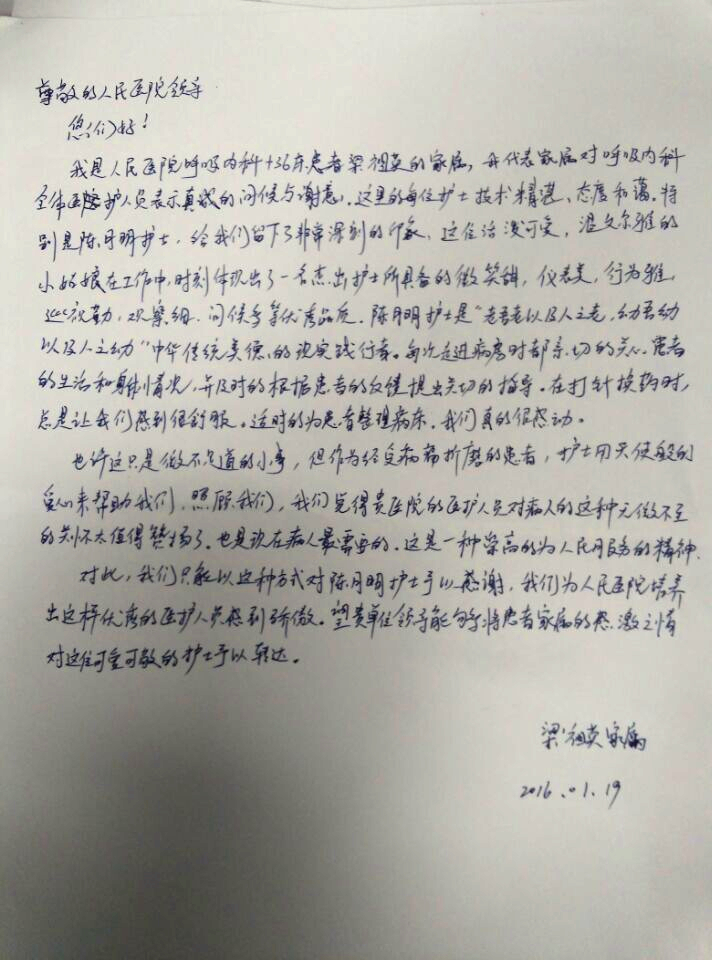 尊敬的人民医院领导
您们好!
我是人民医院呼吸内科+36床患者梁祖英的家属,我代表家属对呼吸内科
全体医院护人员表示真诚的问候与谢意。这里的每位护士技术精湛、态度和蔼。特
别是陈月明护士,给我们留下了非常深刻的印象,这位活泼可爱,温文尔雅的
小姑娘在工作中,时刻体现出了一名杰出护士所具备的微笑甜,仪表美,行为雅,
巡视勤,观察细,问候多等优秀品质。陈月明护士是"老吾老以及人之老,幼吾幼
以及人之幼"中华传统美德的现实践行者。每次走进病房时都亲切的关心患者
的生活和身体情况,并及时的根据患者的反馈提出关切的指导。在打针换药时,
总是让我们感到很舒服。适时的为患者整理病床。我们真的很感动。
也许这只是微不足道的小事,但作为经受病痛折磨的患者,护士用天使般的
爱心来帮助我们,照顾我们,我们觉得贵医院的医护人员对病人的这种无微不至
的关怀太值得赞扬了。也是现在病人最需要的。这是一种崇高的为人民服务的精神.
对此,我们只能以这种方式对陈月明护士予以感谢,我们为人民医院培养
出这样优秀的医护人员感到骄傲。望贵单位领导能够将患者家属的感激之情
对这位可爱可敬的护士予以转达。
梁祖英家属
2016.01.19